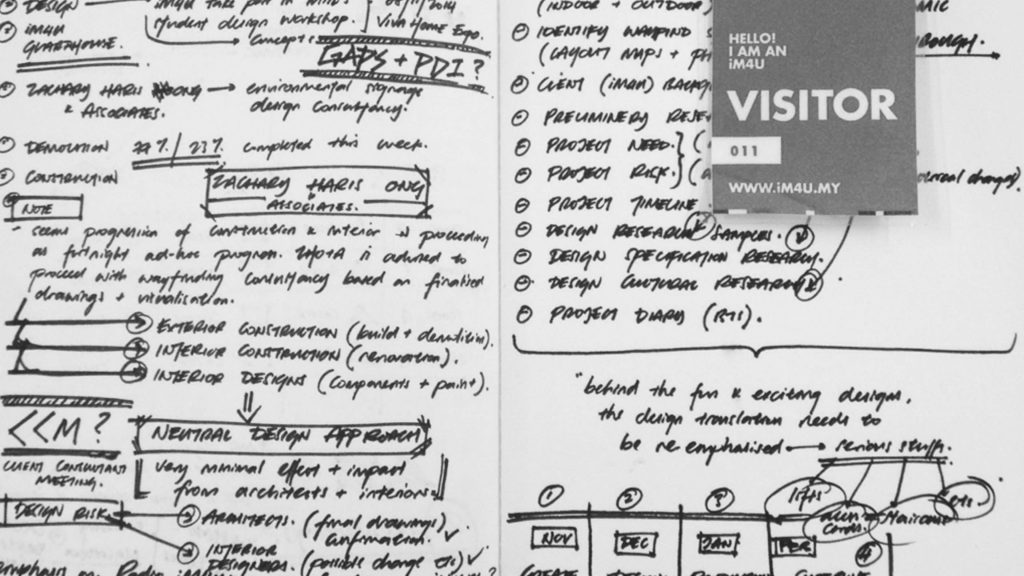 DESIGN
student design workshop.
Viva Home Expo.
iM4U
GUARDHOUSE.
Concept
GAPS + PDI?
ZACHARY HARIS ONG → environmental signage
& ASSOCIATES. design consultancy.
DEMOLITION 27% / 23% completed this week.
CONSTRUCTION
ZACHARY HARIS ONG
+
ASSOCIATES.
NOTE
- seems progression of construction & interior → proceeding
as fortnight ad-hoc program. ZHO+A is advised to
proceed with wayfinding consultancy based on finalised
drawings + visualisation.
EXTERIOR CONSTRUCTION (build + demolition).
INTERIOR CONSTRUCTION (renovation).
INTERIOR DESIGNS (components + paint).
<<M?
NEUTRAL DESIGN APPROACH
CLIENT CONSULTANT
MEETING.
very minimal effect + impact
from architects + interiors.
DESIGN RISK
ARCHITECTS. (final drawings)
confirmation. ✓
INTERIOR
DESIGNERS. (possible change etc) ✓
(INDOOR + OUTDOOR)
IDENTIFY WAYFIND
(LAYOUT MAPS +
CLIENT (iM4U)
PRELIMINERY
PROJECT NEED.
PROJECT RISK.
PROJECT TIMELINE
DESIGN RESEARCH SAMPLES.
DESIGN SPECIFICATION RESEARCH.
DESIGN CULTURAL RESEARCH
PROJECT DIARY (RTS).
HELLO!
I AM AN
iM4U
VISITOR
011
WWW.iM4U.MY
"behind the fun & exciting designs,
the design translation needs to
be re emphasised → serious stuff.
lifts
staircase
etc.
1 2 3
NOV DEC JAN FEB
4